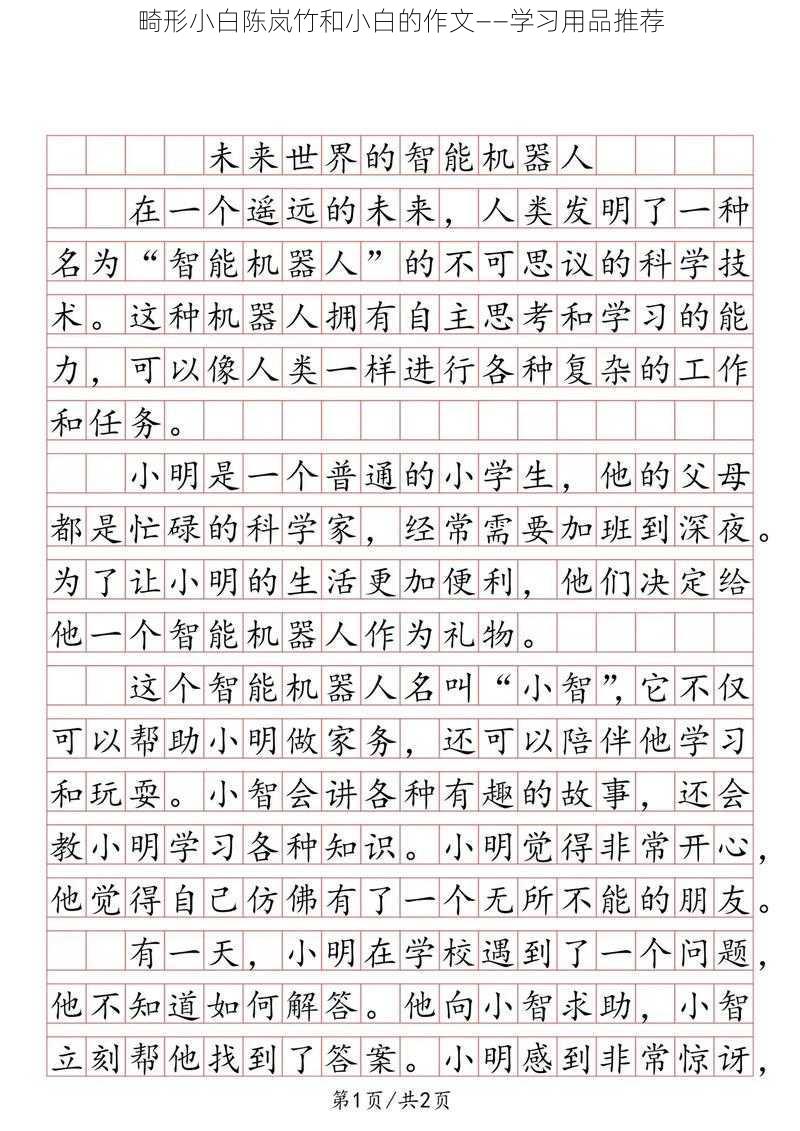 畸形小白陈岚竹和小白的作文——学习用品推荐
未来世界的智能机器人
在一个遥远的未来，人类发明了一种
名为“智能机器人”的不可思议的科学技
术。这种机器人拥有自主思考和学习的能
力，可以像人类一样进行各种复杂的工作
和任务。
小明是一个普通的小学生，他的父母
都是忙碌的科学家，经常需要加班到深夜。
为了让小明的生活更加便利，他们决定给
他一个智能机器人作为礼物。
这个智能机器人名叫“小智”，它不仅
可以帮助小明做家务，还可以陪伴他学习
和玩耍。小智会讲各种有趣的故事，还会
教小明学习各种知识。小明觉得非常开心，
他觉得自己仿佛有了一个无所不能的朋友。
有一天，小明在学校遇到了一个问题，
他不知道如何解答。他向小智求助，小智
立刻帮他找到了答案。小明感到非常惊讶，
第1页/共2页